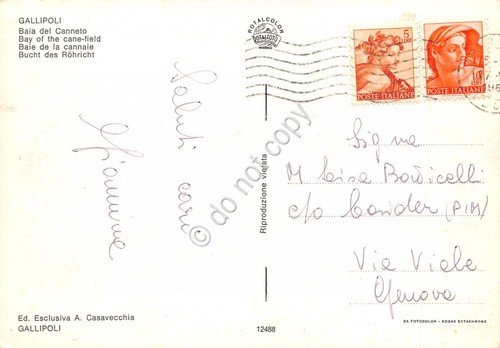 GALLIPOLI
Baia del Canneto
Bay of the cane-field
Baie de la cannaie
Bucht des Röhricht
ROTALCOLOR
ROTALFOTO
MILANO
5
POSTE ITALIANE
10
POSTE ITALIANE
Saluti cari
Giannina
do not copy
Riproduzione vietata
Sig.na
M Luisa
c/o
Via
Genova
Ed. Esclusiva A. Casavecchia
GALLIPOLI
12488
DA FOTOCOLOR - KODAK EKTACHROME